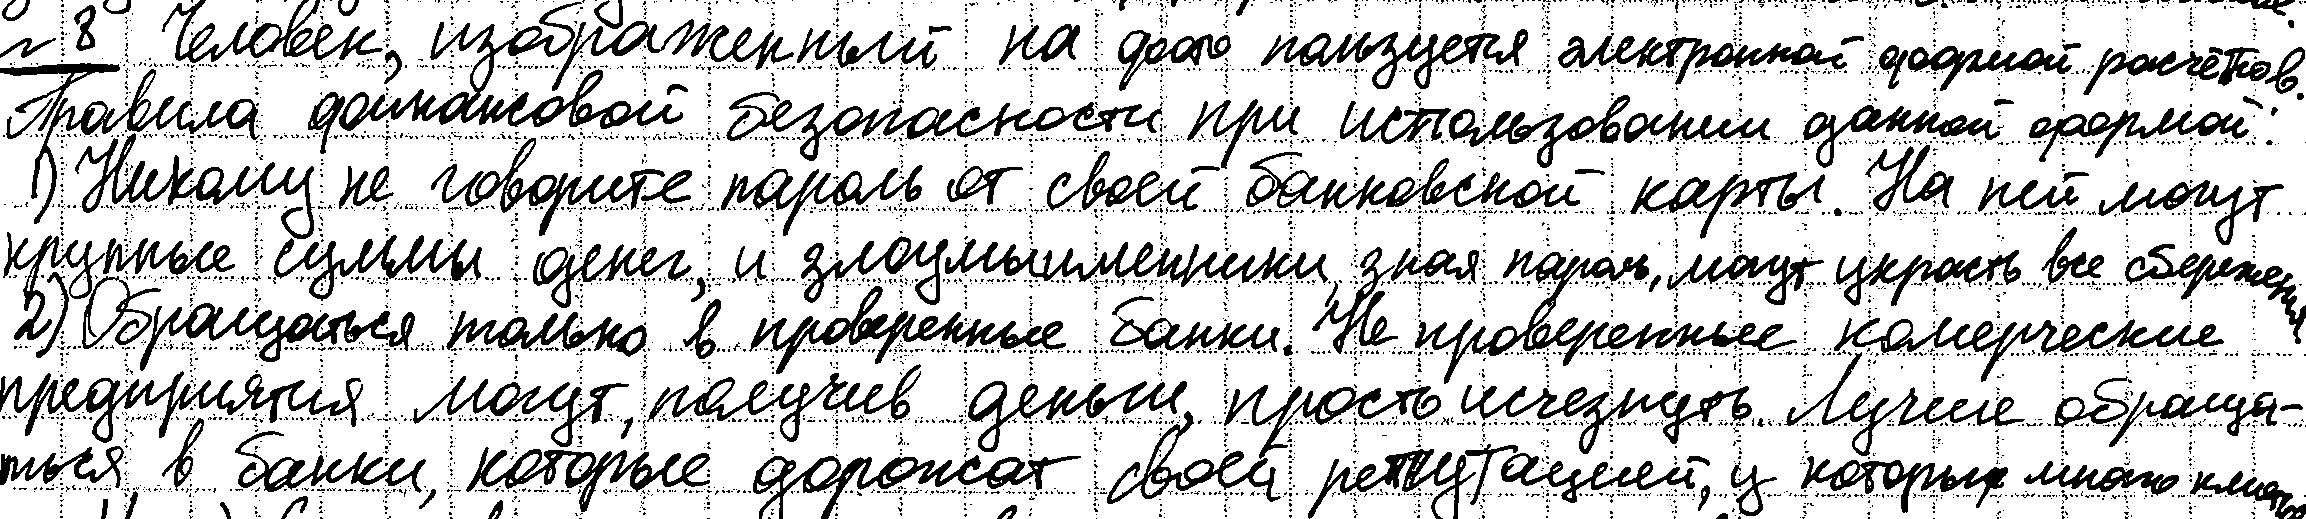 № 8 Человек, изображенный на фото ползуется электронной формой расчётов.
Правила финансовой безопасности при использовании данной формой:
1) Никому не говорите пароль от своей банковской карты. На ней могут
крупные суммы денег, и злоумышленники, зная пароль, могут украсть все сбережения
2) Обращаться только в проверенные банки. Не проверенные комерческие
предприятия могут, получив деньги, просто исчезнуть. Лучше обраща-
ться в банки, которые дорожат своей репутацией, у которых много